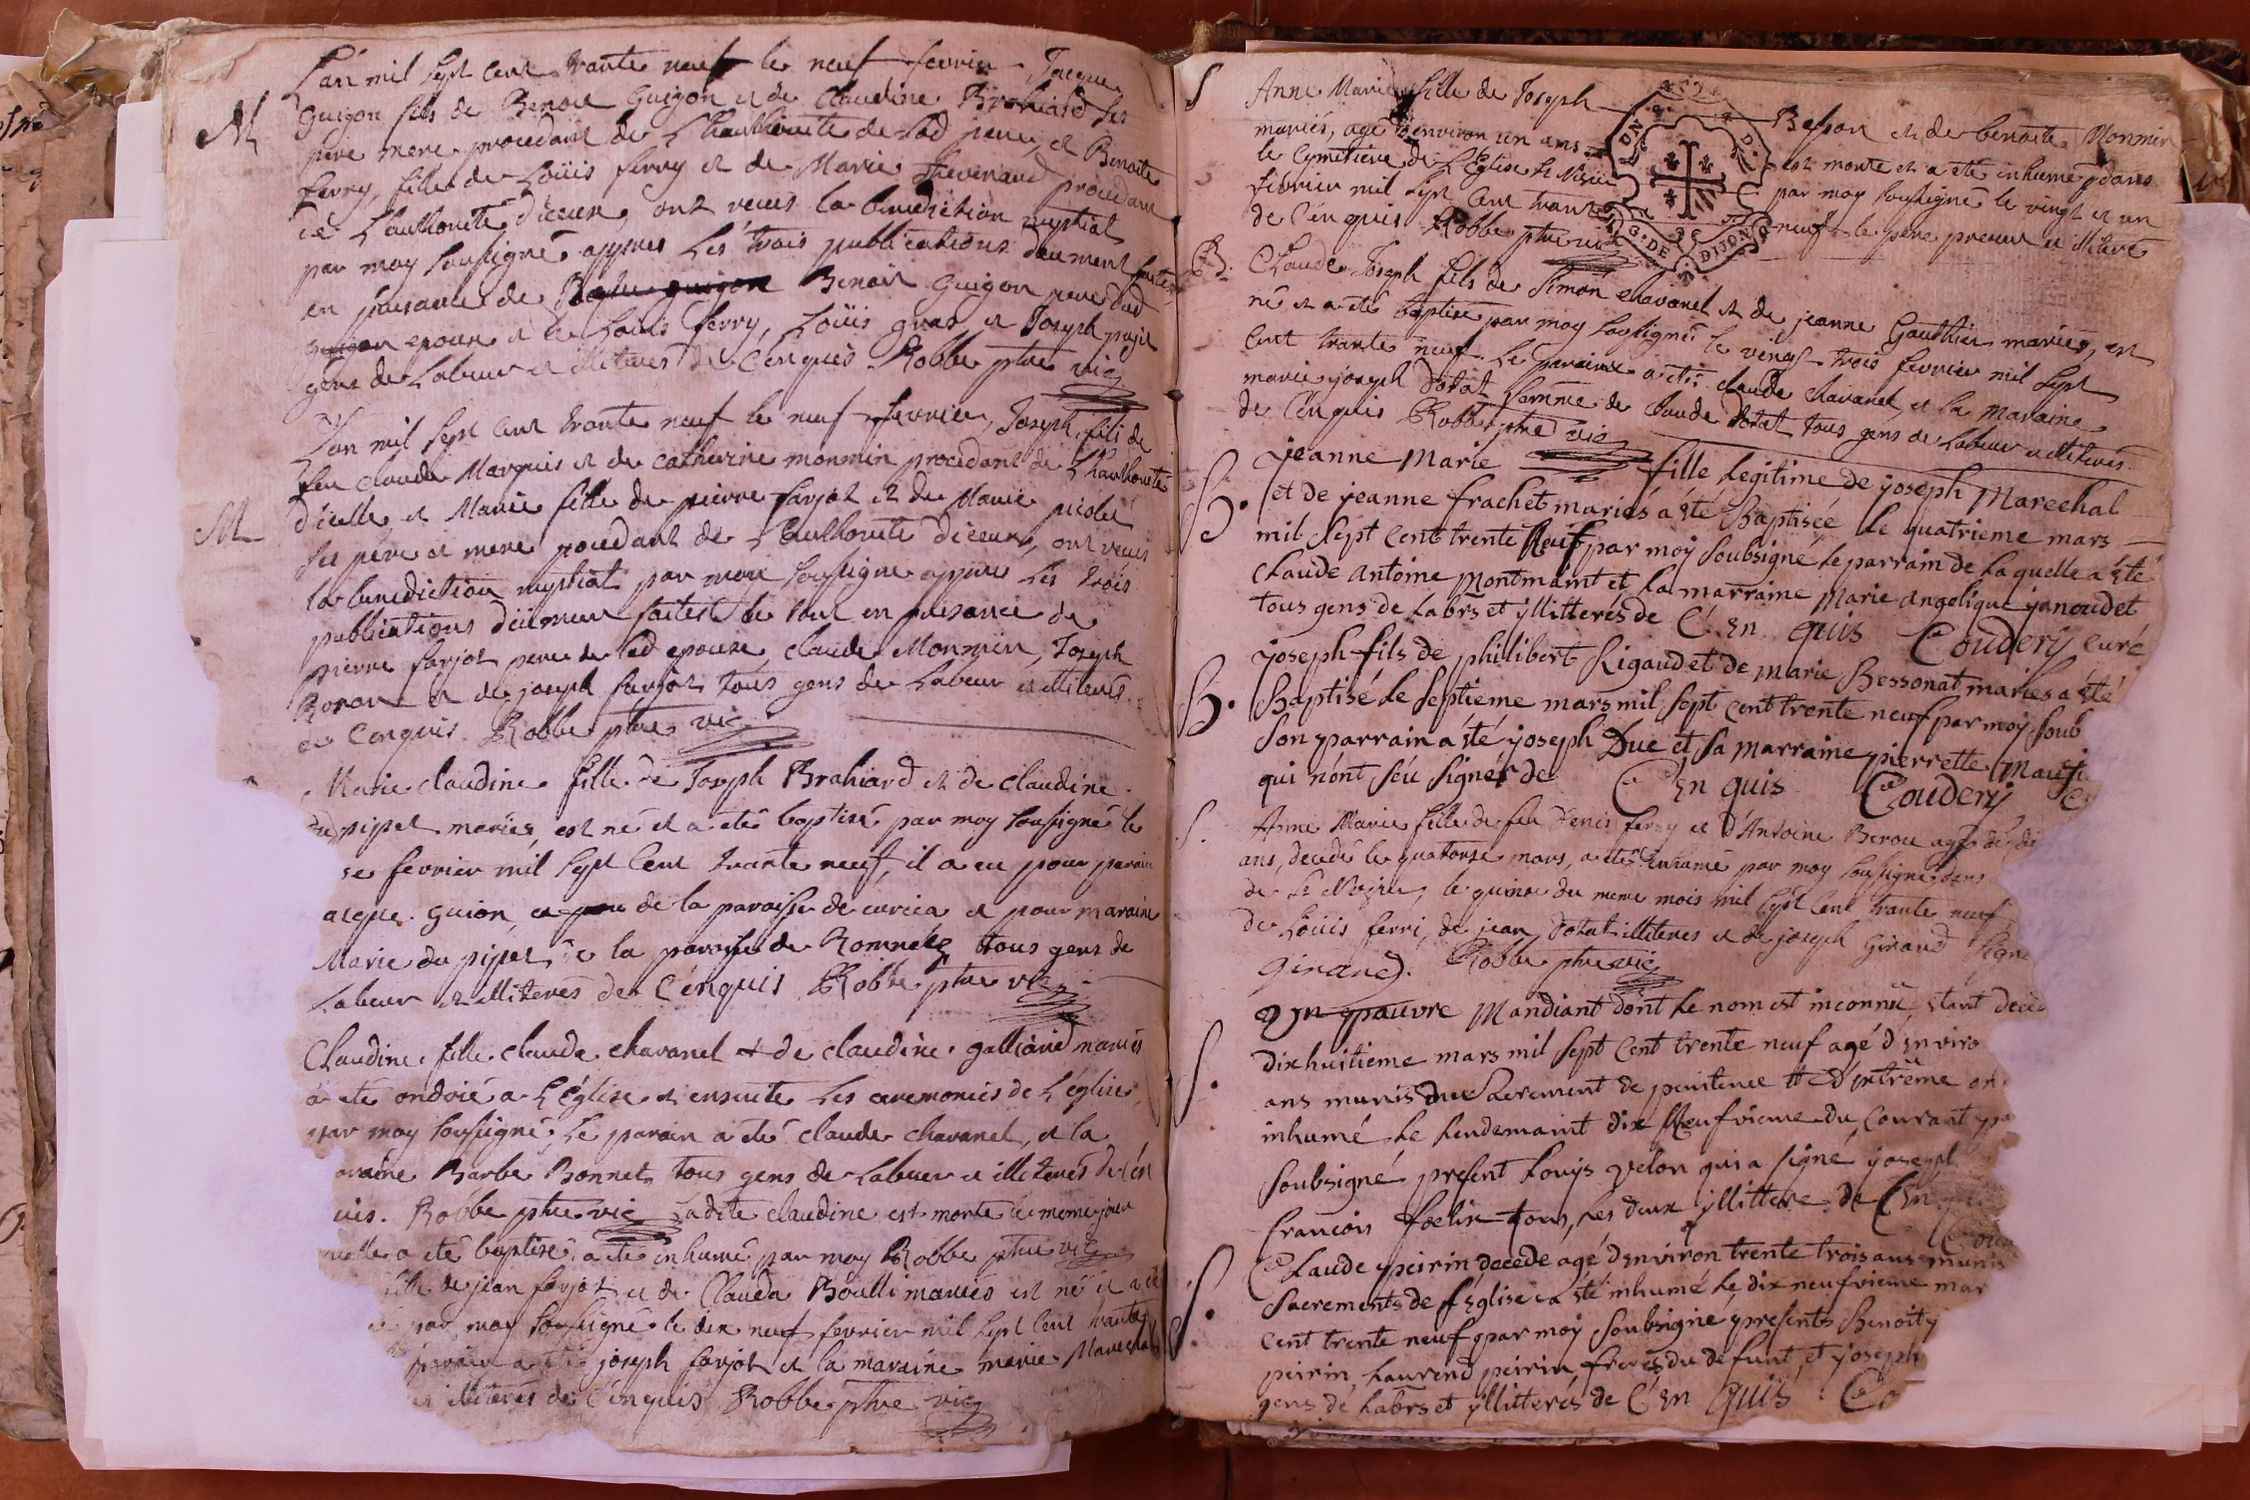 L'an mil sept cent trante neuf le neuf fevrier, Jacque
M
Guigon fils de Benoit Guigon et de Claudine Brahiard ses
pere mere procedant de L'hauthorité de sad mere, et Benoite
ferry, fille de Loüis ferry et de Marie Thevenard procedant
de L'authorité d'iceux, ont reçus la benediction nuptial
par moy soussigné appres Les trois publications deument faites
en presance de Benoit Guigon pere dud
epoux et de Louis ferry, Loüis gras et Joseph
gens de Labeur et illiteres de Cenquis. Robbe ptre vic
L'an mil sept cent trante neuf le neuf fevrier, Joseph fils de
feu claude Marquis et de catherine monmin procedant de L'hauthorité
M
d'icelle et Marie fille de pierre farjot et de Marie
ses pere et mere procedant de L'authorité d'iceux, ont recus
la benediction nuptial par moi soussigné appres Les trois
publications deument faites le tout en presance de
pierre farjot pere de lad epouse, claude Monmin, Joseph
et de joseph farjot tous gens de Labeur et illiteres
de Cenquis. Robbe ptre vic
Marie claudine fille de Joseph Brahiard et de claudine
dupipet mariés, est né et a eté baptisé par moy soussigné le
se fevrier mil sept cent trante neuf, il a eu pour parain
acque guion, de la paroisse de et pour maraine
Marie du pipet, de la paroisse de tous gens de
Labeur et illiteres de Cenquis Robbe ptre vic
Claudine fille claude chavanel et de claudine galliand mariés
a eté ondoié a L'Eglise et ensuite Les ceremonies de L'eglise
par moy soussigné. Le parain a eté claude chavanel, et la
araine Barbe Bonnet tous gens de Labeur et illiteres de Cen
uis. Robbe ptre vic Ladite claudine est morte le meme jour
elle a eté baptisé, a eté inhumé par moy Robbe ptre vic
fille de jean farjot et de Clauda Boulli mariés est né et a eté
par moy soussigné le dix neuf fevrier mil sept cent trante
parain a eté joseph farjot et la maraine marie Mareschal
et illiteres de Cenquis Robbe ptre vic
S
Anne Marie fille de Joseph Besson et de benoite Monmin
mariés, agé d'environ un ans est morte et a eté inhumé dans
le Cymetiere de L'Eglise St Nisier par moy soussigné le vingt et un
fevrier mil sept cent trante neuf le pere present et illiteré
de Cenquis Robbe ptre vic
G. DE DIJON
B.
Claude Joseph fils de Simon chavanel et de jeanne Gauthier mariés, est
né et a eté baptisé par moy soussigné le vingt trois fevrier mil sept
cent trante neuf. Le parain a eté claude chavanel, et la maraine
marie joseph Dotat famme de Claude Dotat tous gens de Labeur et illiteres
de Cenquis Robbe ptre vic
B.
jeanne Marie fille Legitime de joseph Marechal
et de jeanne frachet mariés a été Baptisée Le quatrieme mars
mil Sept Cent trente Neuf par moy Soubsigné Le parrain de Laquelle a été
Claude antoine Montmaint et La marraine Marie angelique janoudet
tous gens de Labrs et yllitterés de Cenquis Coudery Curé
B.
joseph fils de philibert Rigaud et de marie Bessonat mariés a été
Baptisé Le Septieme mars mil Sept Cent trente neuf par moy Soub
Son parrain a été joseph Duc et Sa Marraine pierrette
qui n'ont Séu Signér de Cenquis Coudery
S.
Anne Marie fille de feu Denis ferry et d'Antoine Berou agé de di
ans, decedé le quatorse mars, a eté inhumé par moy soussigné dans
de St Nizier, le quinze du meme mois mil sept cent trante neuf
de Loüis ferri, de jean Dotat illiteres et de joseph Giraud signe
Giraud. Robbe ptre vic
S.
Un pauvre Mandiant dont Le nom est inconnu, etant deced
Dix huitieme mars mil Sept Cent trente neuf agé d'enviro
ans munis des Sacrement de penitence et d'extrême on
inhumé Le Lendemaint dix Neufvieme du Courant pa
Soubsigné present Louys velon qui a Signé joseph
francois foelix tous Les deux yllittere de Cenqui
S.
Claude peirin decede agé d'environ trente trois ans munis
Sacrements de l'Eglise a été inhumé Le dix neufvieme mar
cent trente neuf par moy Soubsigné presents Benoit
peirin Laurend peirin freres du defunt, et joseph
gens de Labrs et yllitterés de Cenquis Co